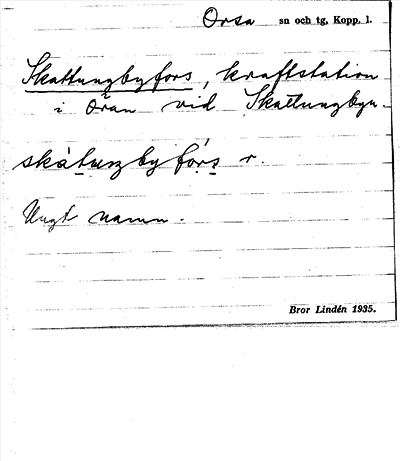 Orsa sn och tg, Kopp. l.
Skattungbyfors, kraftstation
i Oran vid Skattungbyn.
skàtuŋbyfórs r.
Ungt namn.
Bror Lindén 1935.